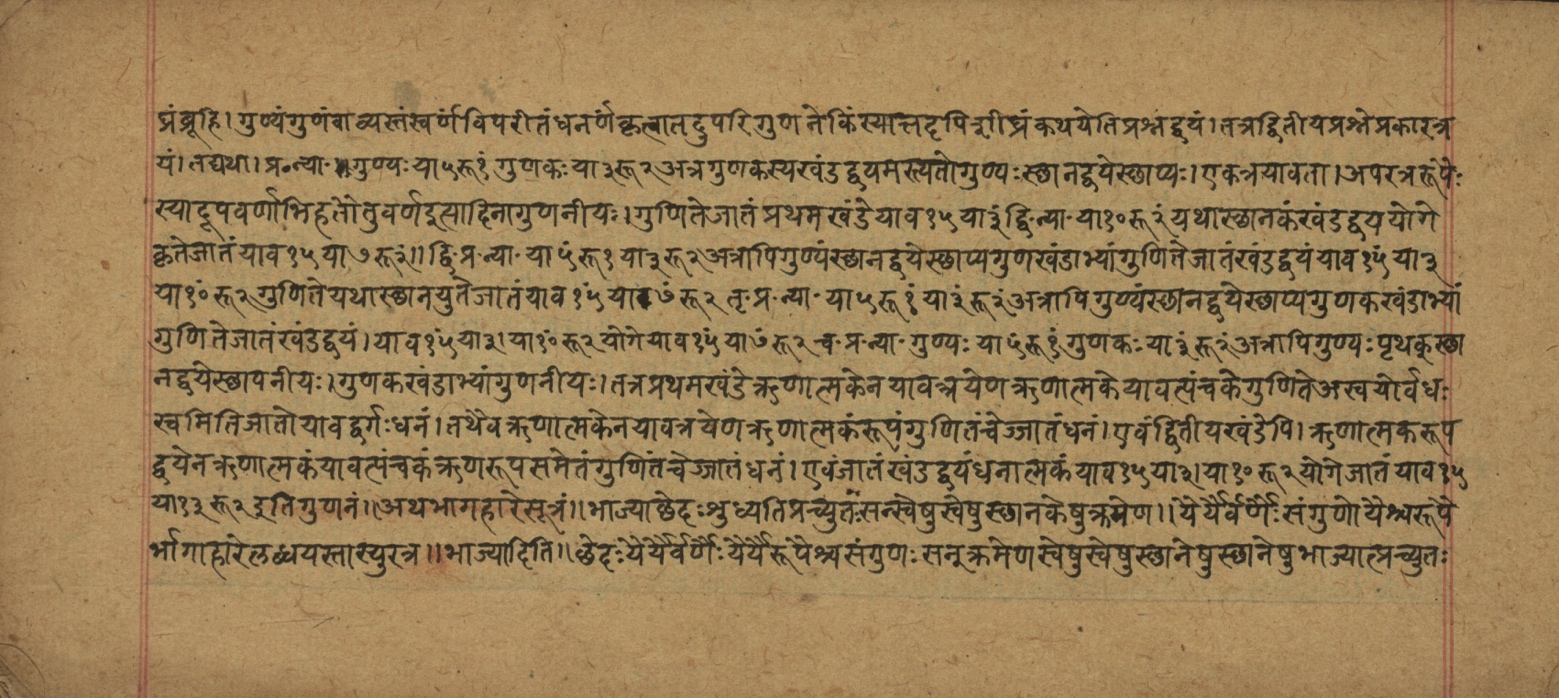 प्रंब्रूहि। गुण्यंगुणंवाव्यस्तंस्वर्णविपरीतंधनर्णंकृत्वातदुपरिगुणनेकिंस्यात्तदृपिशीघ्रंकथयेतिप्रश्नंद्वयं। तत्रद्वितीयप्रश्नेप्रकारत्र
यं। तद्यथा। प्र॰न्या॰ गुण्यः या५रू१ं गुणकः या३रू२ अत्रगुणकस्यखंडद्वयमस्त्यतोगुण्यः स्छानद्वयेस्छाप्यः। एकत्रयावता। अपरत्ररूपैः
स्याद्रूपवर्णाभिहतौतुवर्णइत्यादिनागुणनीयः। गुणितेजातं प्रथमखंडेयाव१५या३ं द्वि॰न्या॰या१०रू२ं यथास्छानकंखंडद्वययोगे
कृतेजातंयाव१५या७रू२ं॥ द्वि॰प्र॰न्या॰ या५ंरू१ या३रू२ अत्रापिगुण्यंस्छानद्वयेस्छाप्यगुणखंडाभ्यांगुणितेजातंखंडद्वयंयाव१५ंया३
या१०ंरू२ गुणितेयथास्छानयुतेजातंयाव१५ंया७ंरू२ तृ॰प्र॰न्या॰ या५रू१ं या३ंरू२ंअत्रापिगुण्यंस्छानद्वयेस्छाप्यगुणकखंडाभ्यां
गुणितेजातंखंडद्वयं। याव१५ंया३। या१०ंरू२योगेयाव१५ंया७ंरू२ च॰प्र॰न्या॰ गुण्यः या५ंरू१ंगुणकः या३ंरू२ंअत्रापिगुण्यः पृथक्स्छा
नद्वयेस्छापनीयः। गुणकखंडाभ्यांगुणनीयः। तत्रप्रथमखंडेऋणात्मकेनयावत्त्रयेणऋणात्मकेयावत्पंचकेगुणितेअस्वयोर्वधः
स्वमितिजातोयावद्वर्गःधनं। तथैवऋणात्मकेनयावत्रयेणऋणात्मकंरूपंगुणितंचेज्जातंधनं। एवंद्वितीयखंडेपि। ऋणात्मकरूप
द्वयेनऋणात्मकंयावत्पंचकंऋणरूपसमेतंगुणितंचेज्जातंधनं। एवंजातंखंडद्वयंधनात्मकंयाव१५या३। या१०रू२योगेजातंयाव१५
या१३रू२इतिगुणनं॥ अथभागहारेसूत्रं॥ भाज्याछेदःशुध्यतिप्रच्युतःसन्स्वेषुस्वेषुस्छानकेषुक्रमेण॥ यैर्यैर्वर्णैःसंगुणोयैश्चरूपै
र्भागाहारेलब्धयस्तास्युरत्र॥ भाज्यादिति॥ छेदःयैर्यैर्वर्णैः यैर्यैरूपैश्चसंगुणः सनुक्रमेणस्वेषुस्वेषुस्छानेषुस्छानेषुभाज्यात्प्रच्युतः